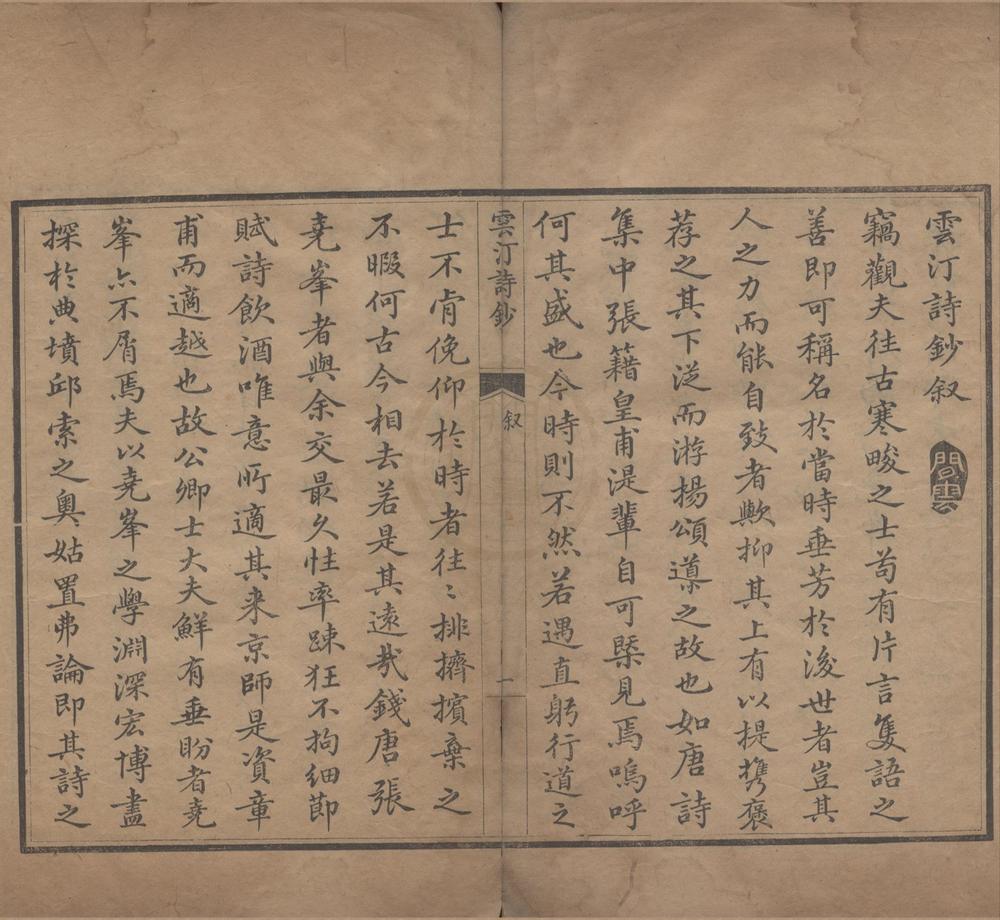 雲汀詩鈔叙
竊觀夫往古寒畯之士苟有片言隻語之
善即可稱名於當時垂芳於後世者豈其
人之力而能自致者歟抑其上有以提携褒
荐之其下從而游揚頌導之故也如唐詩
集中張籍皇甫湜輩自可槩見焉嗚呼
何其盛也今時則不然若遇直躬行道之
雲汀詩鈔
叙
一
士不肯俛仰於時者往〻排擠擯棄之
不暇何古今相去若是其遠哉錢唐張
堯峯者與余交最久性率踈狂不拘細節
賦詩飲酒唯意所適其来京師是資章
甫而適越也故公卿士大夫鮮有垂盼者堯
峯亦不屑焉夫以堯峯之學淵深宏博盡
探於典墳邱索之奥姑置弗論即其詩之